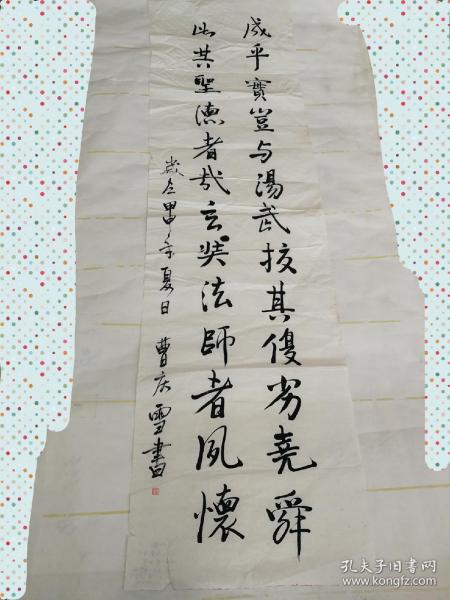 成乎實豈与湯武校其優劣堯舜
比其聖德者哉玄奘法師者夙懷
歲在甲申年夏日 曹庆雪書
孔夫子旧书网
www.kongfz.com